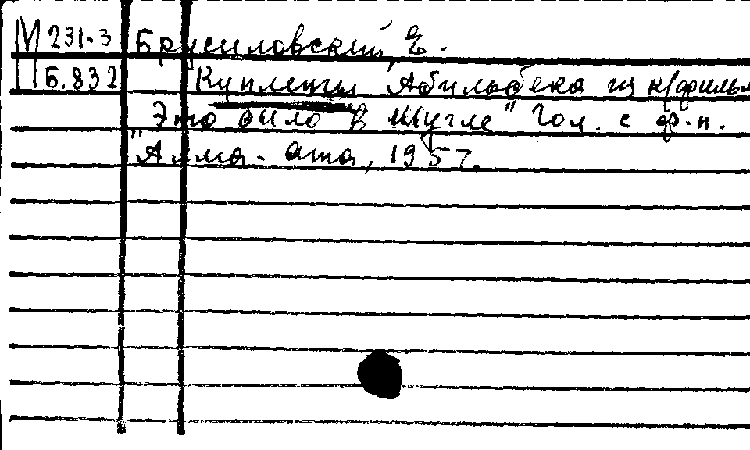 М 231-3 Брусиловский, Е.
Б.832 Куплеты Абильбека из к/фильм
"Это было в Шугле" Гол. с ф-п.
Алма-Ата, 1957.